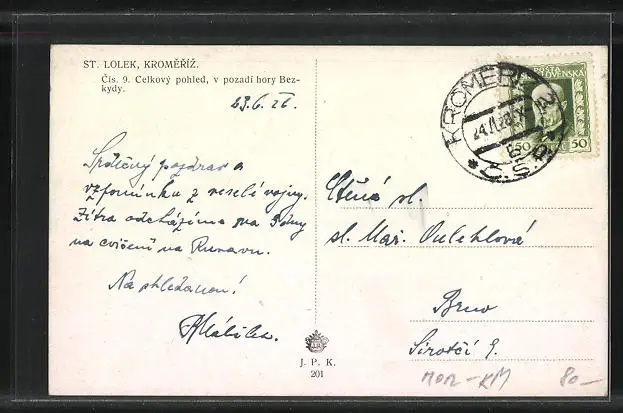 ST. LOLEK, KROMĚŘÍŽ.
Čís. 9. Celkový pohled, v pozadí hory Bez-
kydy.
23.6. 26.
Srdečný pozdrav a
vzpomínku z veselé vojny.
Zítra odcházíme na 3 dny
na cvičení na Rusavu.
Na shledanou!
KROMĚŘÍŽ
Č.S.P.
POŠTA
ČESKOSLOVENSKÁ
50 50
Ctěná sl.
sl. Mař. Oulehlová
Brno
Sirotčí 9.
J. P. K.
201
MOR-KM
80-